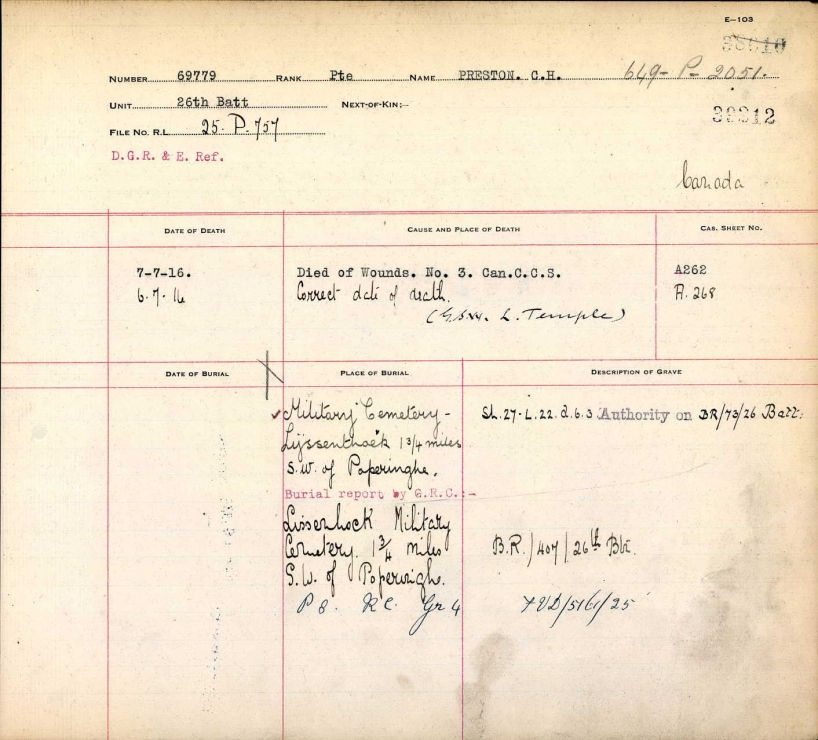 E—103
NUMBER 69779 RANK Pte NAME PRESTON. C.H. 649- P- 2051.
UNIT 26th Batt NEXT-OF-KIN:—
FILE NO. R.L. 25. P. 757
D.G.R. & E. Ref.
Canada
DATE OF DEATH CAUSE AND PLACE OF DEATH CAS. SHEET NO.
7-7-16. Died of Wounds. No. 3. Can.C.C.S. A262
6.7.16 Correct date of death. A. 268
(G.S.W. L. Temple)
DATE OF BURIAL PLACE OF BURIAL DESCRIPTION OF GRAVE
Military Cemetery - Sh.27-L.22.d.6.3. Authority on BR/73/26 Batt:
Lijssenthoek 1 3/4 miles
S.W. of Poperinghe.
Burial report by G.R.C.:-
Lissenhock Military
Cemetery. 1 3/4 miles B.R./407/26th Bn.
S.W. of Poperingh.
P 8. R C. Gr 4